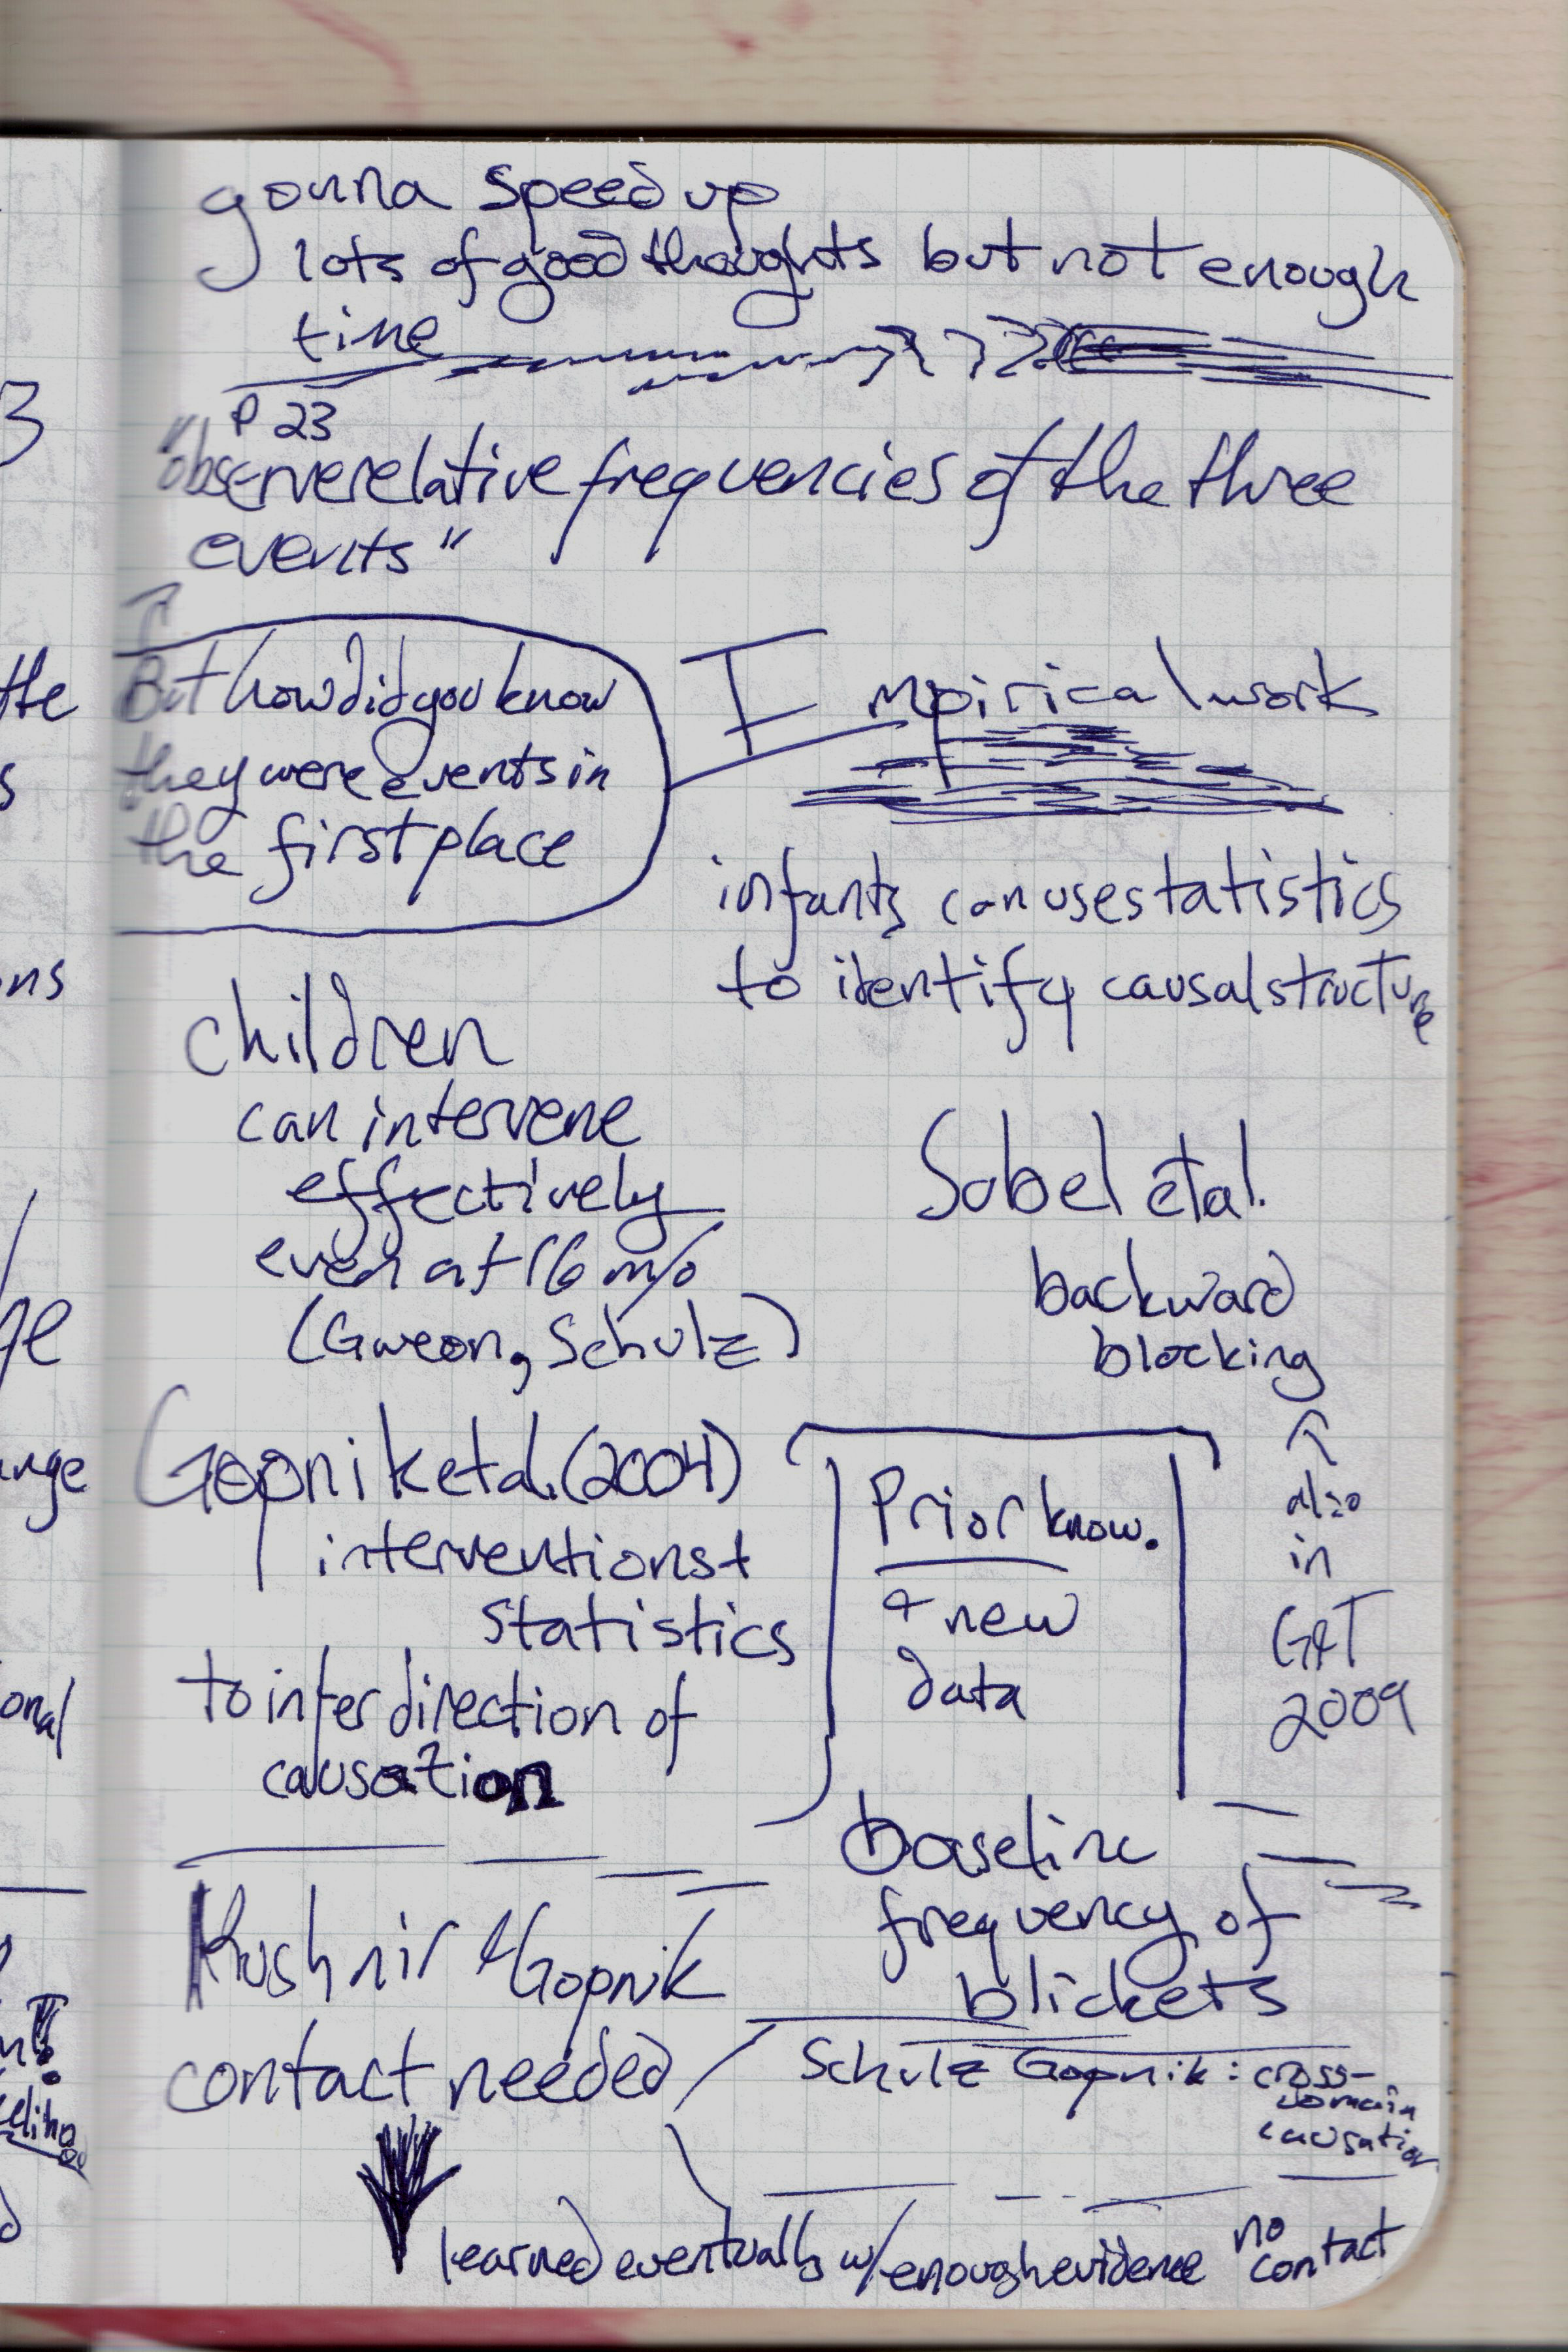 gonna speed up
lots of good thoughts but not enough
time
P 23
"observe relative frequencies of the three
events"
But how did you know
they were events in
the first place
Empirical work
infants can use statistics
to identify causal structure
children
can intervene
effectively
even at 16 m/o
(Gweon, Schulz)
Sobel et al.
backward
blocking
↑
also
in
G&T
2009
Gopnik et al. (2004)
interventions +
statistics
to infer direction of
causation
Prior know.
+ new
data
baseline
frequency of
blickets
Kushnir & Gopnik
contact needed
Schulz Gopnik: cross-
domain
causation
learned eventually w/ enough evidence
no
contact
3
the
s
ns
ge
ange
onal